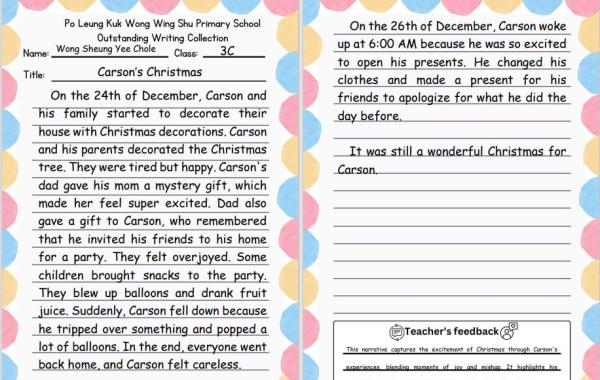 Po Leung Kuk Wong Wing Shu Primary School
Outstanding Writing Collection
Name: Wong Sheung Yee Chole Class: 3C
Title: Carson's Christmas
On the 24th of December, Carson and
his family started to decorate their
house with Christmas decorations. Carson
and his parents decorated the Christmas
tree. They were tired but happy. Carson's
dad gave his mom a mystery gift, which
made her feel super excited. Dad also
gave a gift to Carson, who remembered
that he invited his friends to his home
for a party. They felt overjoyed. Some
children brought snacks to the party.
They blew up balloons and drank fruit
juice. Suddenly, Carson fell down because
he tripped over something and popped a
lot of balloons. In the end, everyone went
back home, and Carson felt careless.
On the 26th of December, Carson woke
up at 6:00 AM because he was so excited
to open his presents. He changed his
clothes and made a present for his
friends to apologize for what he did the
day before.
It was still a wonderful Christmas for
Carson.
Teacher's feedback
This narrative captures the excitement of Christmas through Carson's
experiences, blending moments of joy and mishap. It highlights his